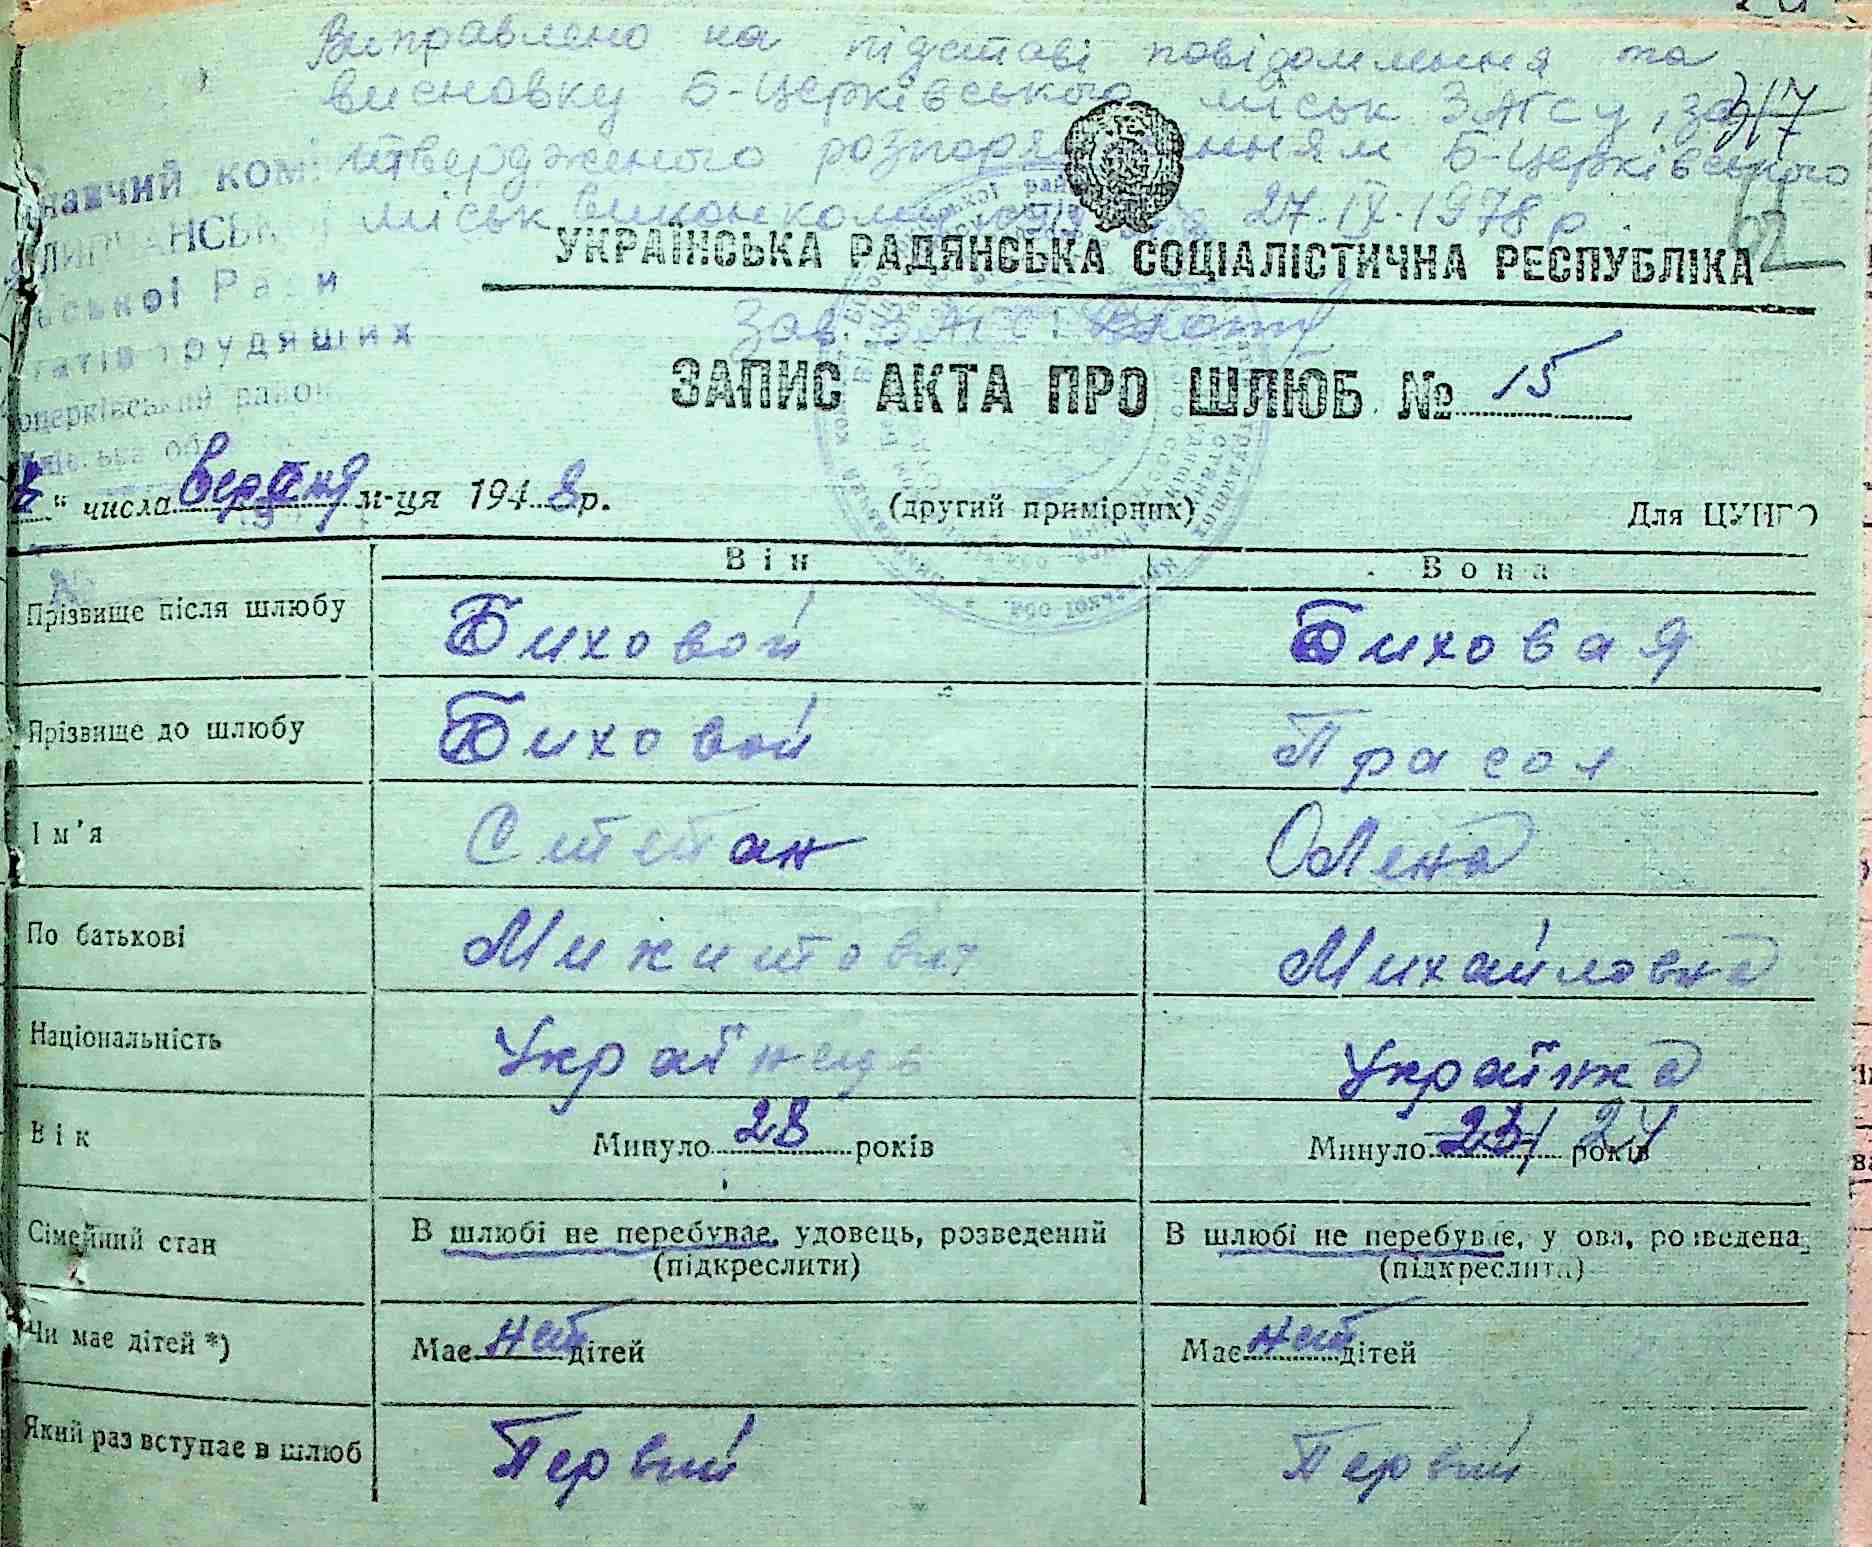 Виправлено на підставі повідомлення та
висновку Б-Церківського міськ ЗАГСу, за
317
твердженого розпорядженням Б-Церківського
міськвиконкому 27.IX.1978р.
УКРАЇНСЬКА РАДЯНСЬКА СОЦІАЛІСТИЧНА РЕСПУБЛІКА
Зав. ЗАГС
ЗАПИС АКТА ПРО ШЛЮБ № 15
" числа вересня м-ця 1948р.
(другий примірник)
Для ЦУНГО
Він
Вона
Прізвище після шлюбу
Биховой
Биховая
Прізвище до шлюбу
Биховой
Прасол
Ім'я
Степан
Олена
По батькові
Микитович
Михайловна
Національність
Українець
Українка
Вік
Минуло 28 років
Минуло 23 24 років
Сімейний стан
В шлюбі не перебуває, удовець, розведений
(підкреслити)
В шлюбі не перебуває, удова, розведена
(підкреслити)
Чи має дітей *)
Має нет дітей
Має нет дітей
Який раз вступає в шлюб
Первий
Первий